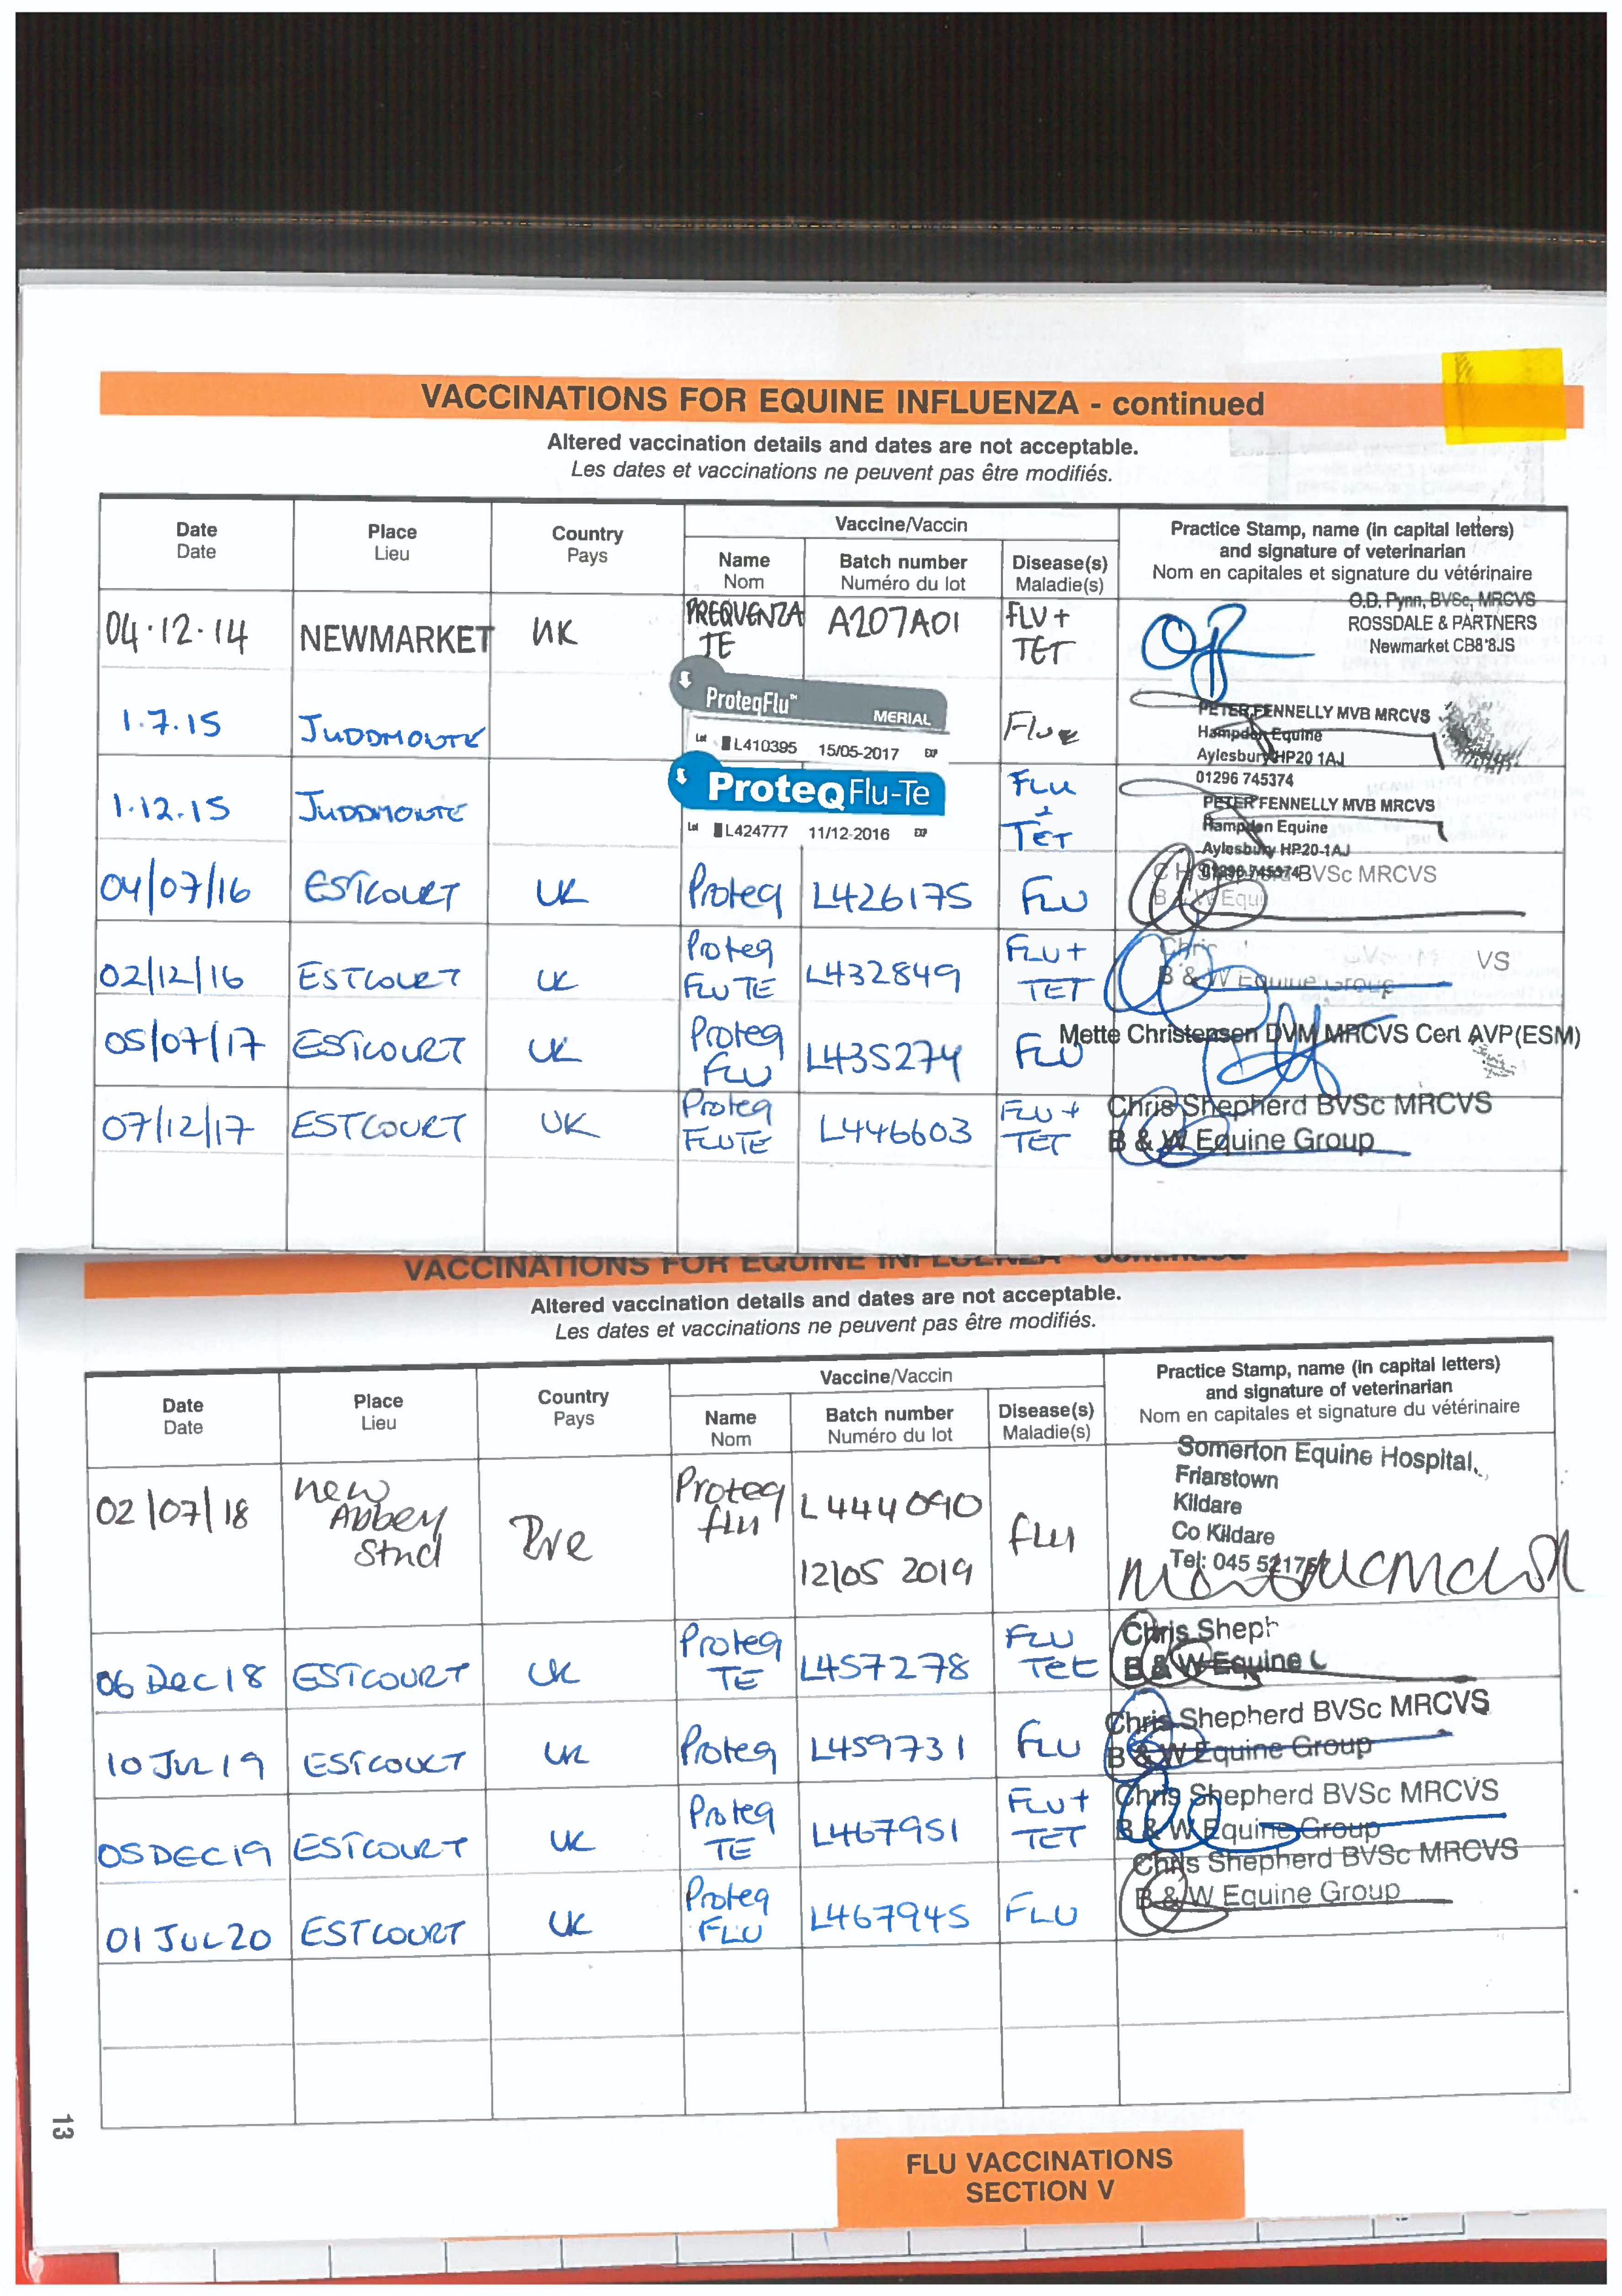 VACCINATIONS FOR EQUINE INFLUENZA - continued
Altered vaccination details and dates are not acceptable.
Les dates et vaccinations ne peuvent pas être modifiés.
Date
Date
Place
Lieu
Country
Pays
Vaccine/Vaccin
Name
Nom
Batch number
Numéro du lot
Disease(s)
Maladie(s)
Practice Stamp, name (in capital letters)
and signature of veterinarian
Nom en capitales et signature du vétérinaire
04.12.14 NEWMARKET UK PREQUENZA TE A207A01 FLU + TET
O.D. Pynn, BVSc, MRCVS
ROSSDALE & PARTNERS
Newmarket CB8 8JS
1.7.15 JUDDMONTE
ProteqFlu™
MERIAL
Lot L410395 15/05-2017 EXP
Flu
PETER FENNELLY MVB MRCVS
Hampden Equine
Aylesbury HP20 1AJ
01296 745374
1.12.15 JUDDMONTE
ProteQ Flu-Te
Lot L424777 11/12-2016 EXP
FLU + TET
PETER FENNELLY MVB MRCVS
Hampden Equine
Aylesbury HP20 1AJ
01296 745374
04/07/16 ESTCOURT UK Proteq L426175 FLU
BVSc MRCVS
B & W Equi
02/12/16 ESTCOURT UK Proteq FLU TE L432849 FLU + TET
Chris VS
B & W Equine Group
05/07/17 ESTCOURT UK Proteq FLU L435274 FLU
Mette Christensen DVM MRCVS Cert AVP(ESM)
07/12/17 ESTCOURT UK Proteq FLUTE L446603 FLU + TET
Chris Shepherd BVSc MRCVS
B & W Equine Group
VACCINATIONS FOR EQUINE INFLUENZA - continued
Altered vaccination details and dates are not acceptable.
Les dates et vaccinations ne peuvent pas être modifiés.
Date
Date
Place
Lieu
Country
Pays
Vaccine/Vaccin
Name
Nom
Batch number
Numéro du lot
Disease(s)
Maladie(s)
Practice Stamp, name (in capital letters)
and signature of veterinarian
Nom en capitales et signature du vétérinaire
02/07/18 new Abbey Stud Ire Proteq flu L444090 12/05 2019 flu
Somerton Equine Hospital,
Friarstown
Kildare
Co Kildare
Tel: 045 52175
06 Dec 18 ESTCOURT UK Proteq TE L457278 FLU Tet
Chris Sheph
B & W Equine
10 JUL 19 ESTCOURT UK Proteq L459731 FLU
Chris Shepherd BVSc MRCVS
B & W Equine Group
05 DEC 19 ESTCOURT UK Proteq TE L467951 FLU + TET
Chris Shepherd BVSc MRCVS
B & W Equine Group
01 JUL 20 ESTCOURT UK Proteq FLU L467945 FLU
Chris Shepherd BVSc MRCVS
B & W Equine Group
13
FLU VACCINATIONS
SECTION V